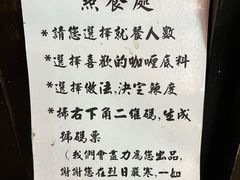 點餐處
*請您選擇就餐人數
*選擇喜歡的咖喱底料
*選擇做法,決定辣度
*掃右下角二維碼,生成
號碼票
(我們會盡力為您出品,
謝謝您在烈日嚴寒,一如